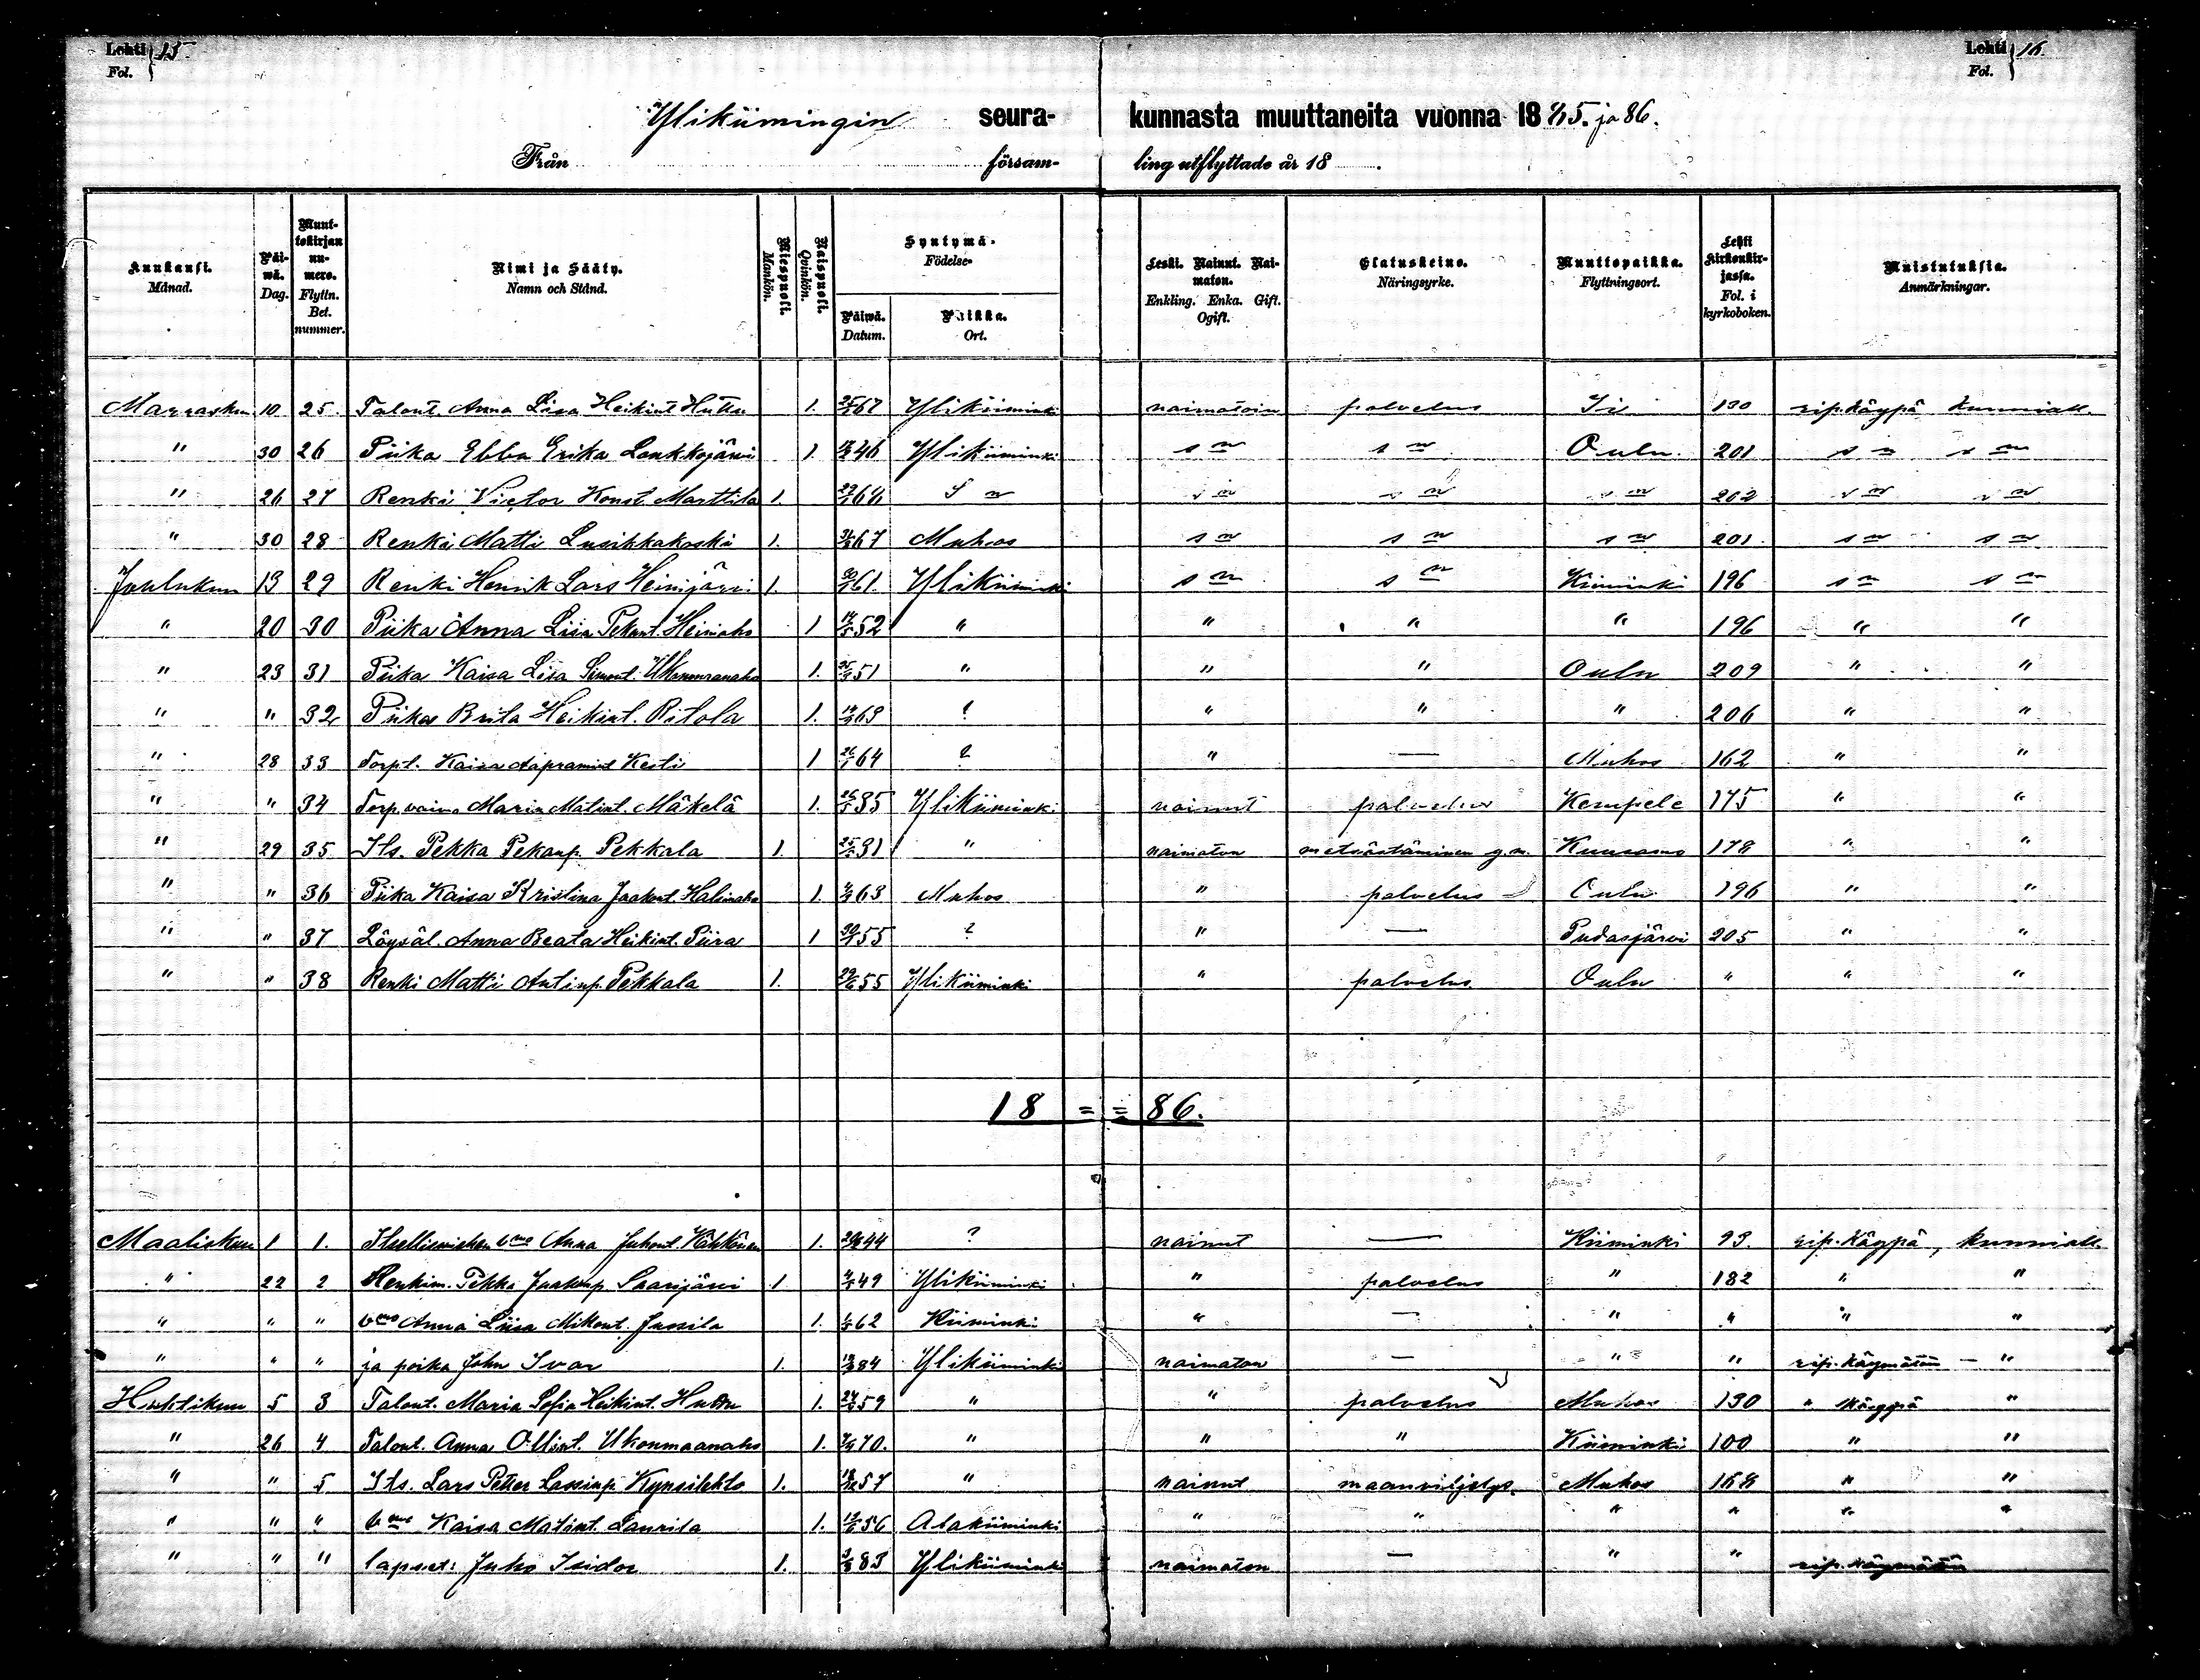 Lehti 15
Fol.
Lehti 16
Fol.
Ylikiimingin seura-kunnasta muuttaneita vuonna 1885. ja 86.
Från försam-ling utflyttade år 18 .
Kuukausi. Månad.
Päi-wä. Dag.
Muut-tokirjan nu-mero. Flyttn. Bet. nummer.
Nimi ja Sääty. Namn och Stånd.
Miespuoli. Mankön.
Naispuoli. Qvinkön.
Syntymä- Födelse-
Päiwä. Datum.
Paikka. Ort.
Leski. Nainut. Nai-maton. Enkling. Enka. Gift. Ogift.
Elatuskeino. Näringsyrke.
Muuttopaikka. Flyttningsort.
Lehti kirkonkir-jassa. Fol. i kyrkoboken.
Muistutuksia. Anmärkningar.
Marraskuu 10 25. Talont. Anna Liisa Heikint Huttu 1. 67 Ylikiiminki naimatoin palvelus Ii 130 rip.käypä kunniall.
" 30 26 Piika Ebba Erika Lonkkojärvi 1. 46 Ylikiiminki s n s n Oulu 201 s n s n
" 26 27 Renki Victor Konst. Marttila 1. S n s n s n s n 202 s n s n
" 30 28 Renki Matti Lusikkakoski 1. 67 Muhos s n s n s n 201 s n s n
Joulukuu 13 29 Renki Henrik Lars Heinijärvi 1. 61. Ylikiiminki s n s n Kiiminki 196 s n s n
" 20 30 Piika Anna Liisa Pekant. Heiniaho 1 52 " " " " 196 " "
" 23 31 Piika Kaisa Liisa Simont. Ukonmaanaho 1. 51 " " " Oulu 209 " "
" " 32 Piika Brita Heikint. Ritola 1. ? " " " 206 " "
" 28 33 Torpt. Kaisa Aapramint Kesti 1 64 ? " — Muhos 162 " "
" " 34 Torp.vaimo Maria Matint. Mäkelä 1. 35 Ylikiiminki nainut palvelus Kempele 175 " "
" 29 35 Its. Pekka Pekanp. Pekkala 1. 31 " naimaton metsästäminen y.m. Kuusamo 178 " "
" " 36 Piika Kaisa Kristina Jaakont. Halinaho 1. 63 Muhos " palvelus Oulu 196 " "
" " 37 Löysäl. Anna Beata Heikint. Piira 1 55 ? " — Pudasjärvi 205 " "
" " 38 Renki Matti Antinp. Pekkala 1. 55 Ylikiiminki " palvelus Oulu " " "
18 = = 86.
Maaliskuu 1 1. Itsellismiehen vmo Anna Juhont. Kähkönen 1. 44 ? nainut — Kiiminki 93. rip. käypä, kunniall.
" 22 2 Renkim. Pekka Jaakonp. Saarijärvi 1. 49 Ylikiiminki " palvelus " 182 " "
" " " vmo Anna Liisa Mikont. Jussila 1. 62 Kiiminki " — " " " "
" " " ja poika John Ivar 1. 84 Ylikiiminki naimaton — " " rip. käymätön — "
Huhtikuu 5 3 Talont. Maria Sofia Heikint. Huttu 1. 59 " " palvelus Muhos 130 " käypä "
" 26 4 Talont. Anna Ollint. Ukonmaanaho 1. 70. " " " Kiiminki 100 " "
" " 5 Its. Lars Petter Lassinp. Kynsilehto 1. 57 " nainut maanviljelys. Muhos 168 " "
" " " vmo Kaisa Matint. Laurila 1. 56 Alakiiminki " " " " " "
" " " lapset: Juho Isidor 1. 83 Ylikiiminki naimaton — " " rip. käymätön